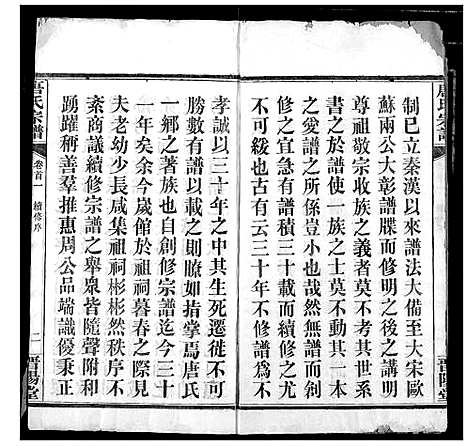 制已立秦漢以來譜法大備至大宋歐
蘇兩公大彰譜牒而修明之後之講明
尊祖敬宗收族之義者莫不考其世系
書之於譜使一族之士莫不動其一本
之愛譜之所係豈小也哉然而無譜當
修之宜急有譜積三十載而續修之尤
不可緩也古有云三十年不修譜爲不
孝誠以三十年之中其生死遷徙不可
勝數有譜以載之則瞭如指掌焉唐氏
一鄉之著族也自創修宗譜迄今三十
一年矣余今歲館於祖祠暮春之際見
夫老幼少長咸集祖祠彬彬然秩序不
紊商議續修宗譜之舉衆皆隨聲附和
踴躍稱善羣推惠周公品端識優秉正
唐氏宗譜
卷首一
續修序
二
晋陽堂